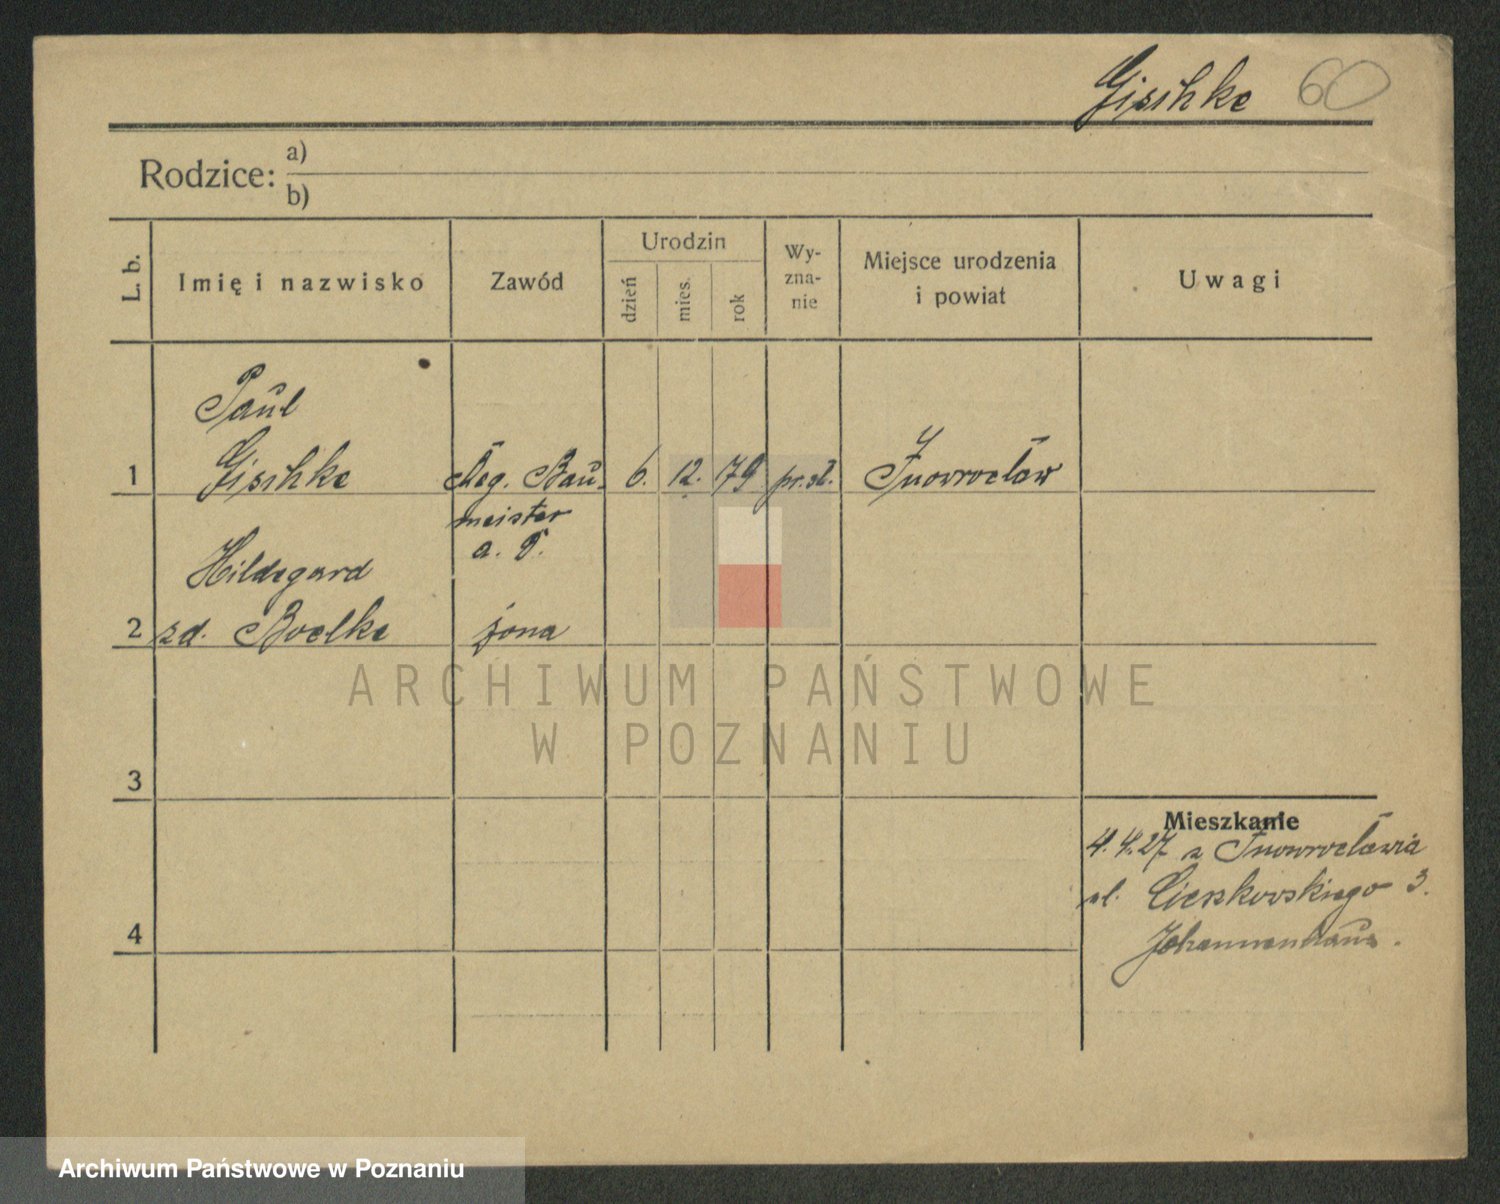 Gisihke 60
Rodzice: a)
b)
L. b.
Imię i nazwisko
Zawód
Urodzin
dzień
mies.
rok
Wy-
zna-
nie
Miejsce urodzenia
i powiat
Uwagi
Paul
1 Gisihke Reg. Bau- 6. 12. 79 Inowrocław
meister
a. D.
Hildegard
2 zd. Boelke żona
3
4
Mieszkanie
4.4.27 z Inowrocławia
ul. Cieszkowskiego 3.
Johannenhaus.
ARCHIWUM PAŃSTWOWE
W POZNANIU
Archiwum Państwowe w Poznaniu